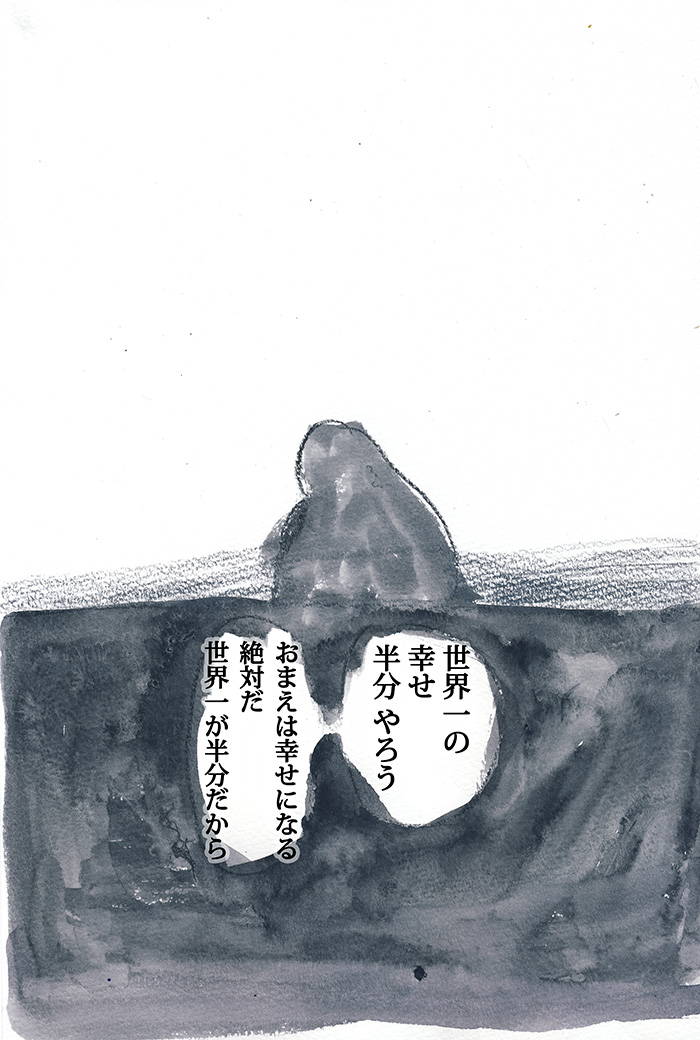 世界一の
幸せ
半分やろう
おまえは幸せになる
絶対だ
世界一が半分だから